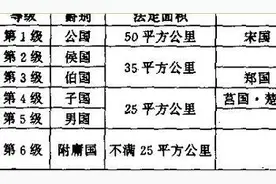 等级 爵别 法定面积
第1级 公国 50平方公里 宋国
第2级 侯国 35平方公里
第3级 伯国 郑国
第4级 子国 25平方公里 莒国·楚
第5级 男国
第6级 附庸国 不满25平方公里